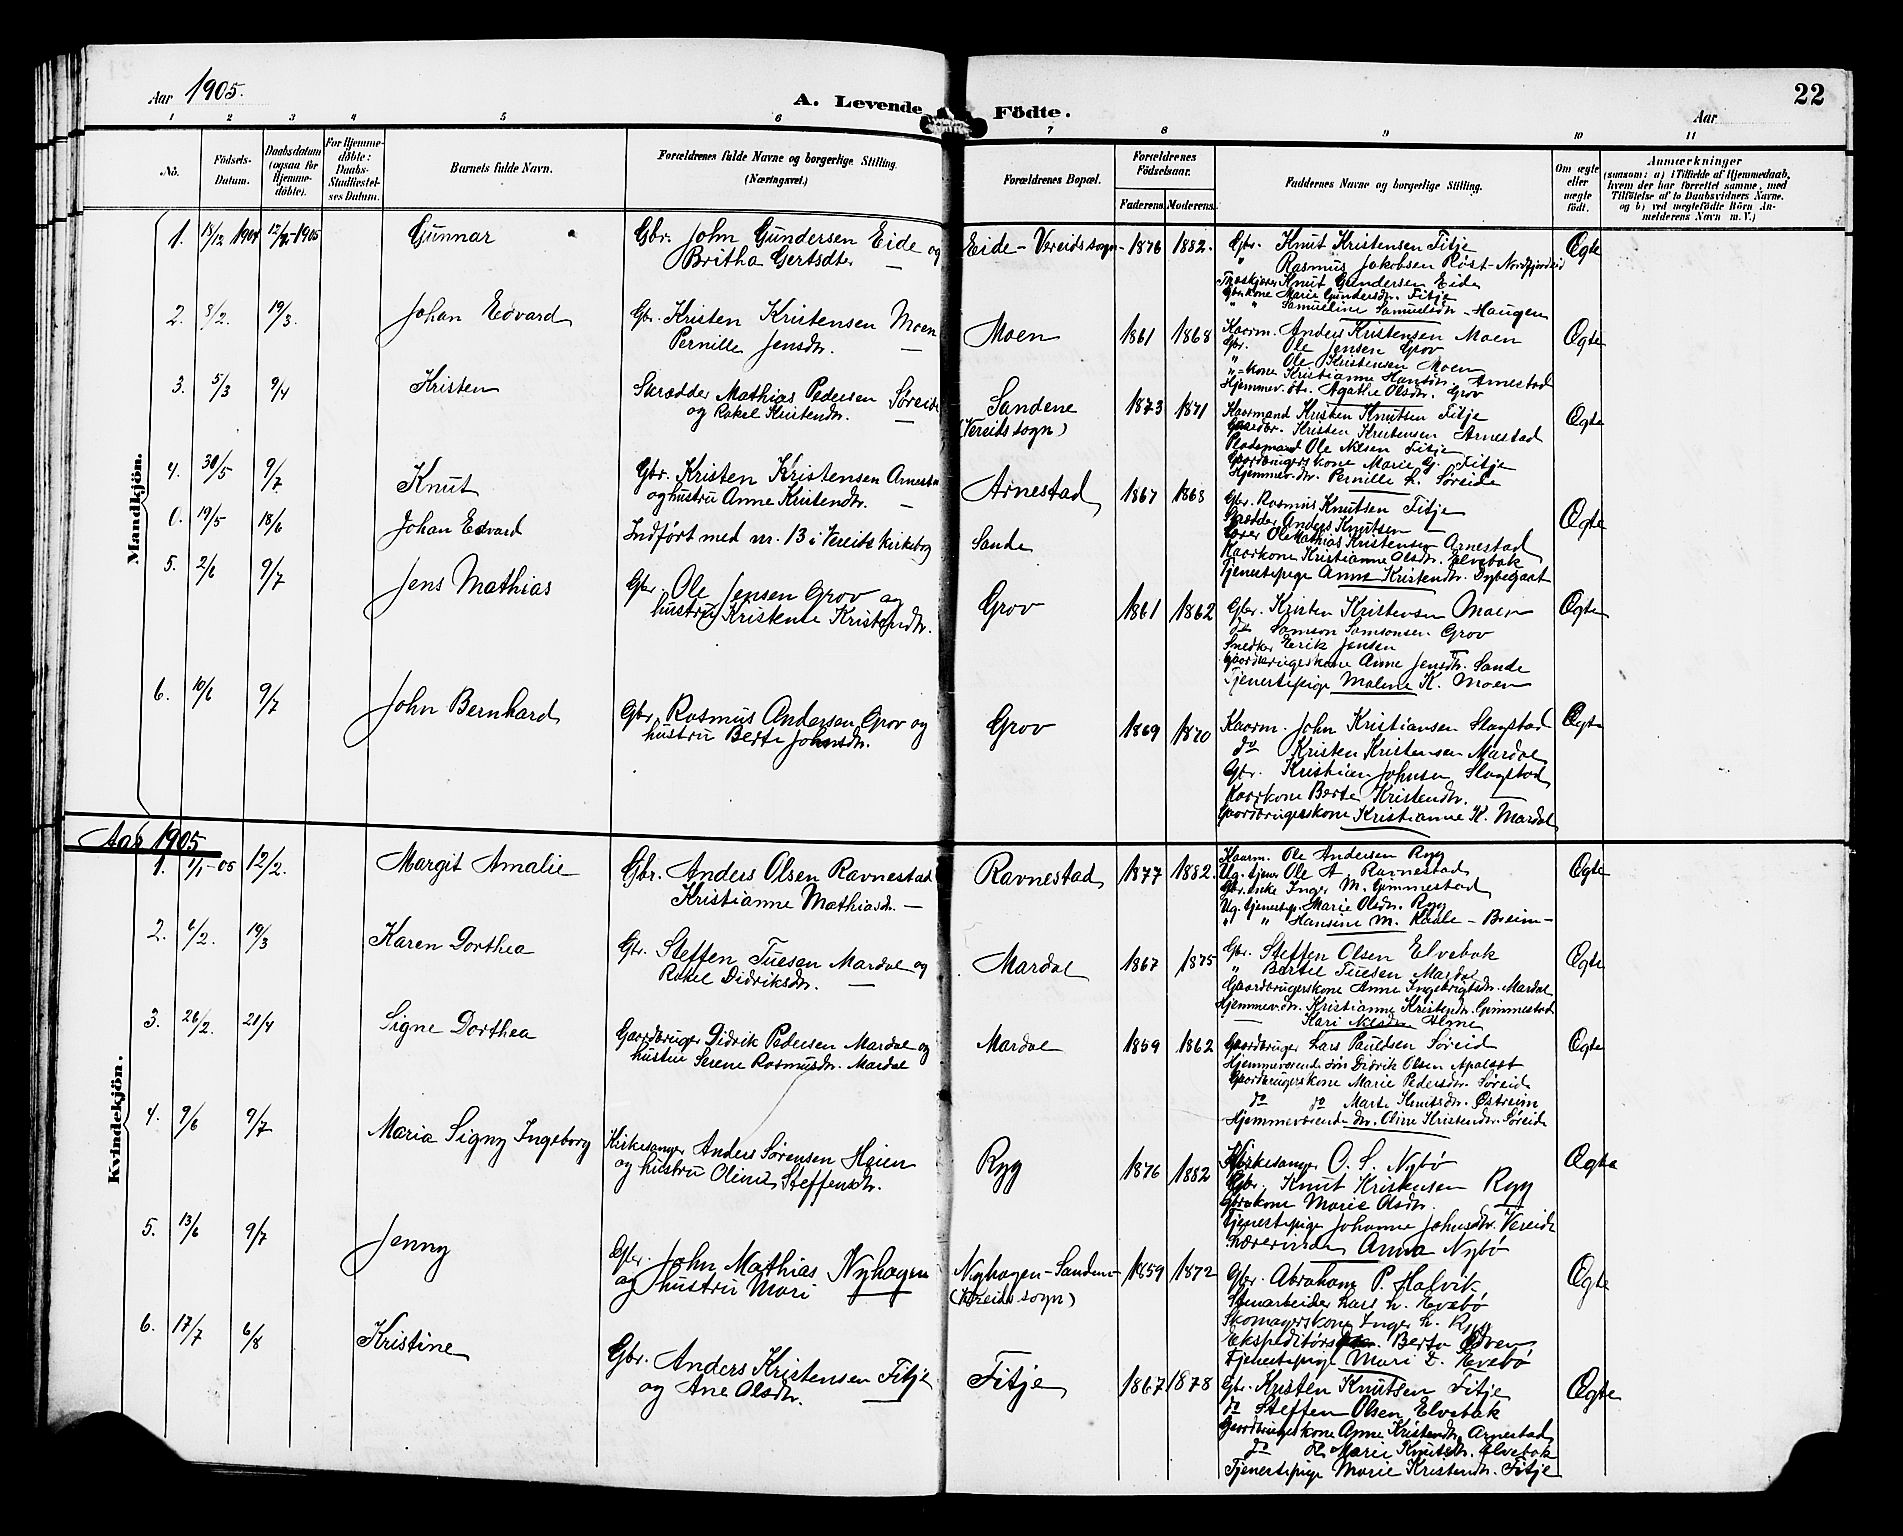 Aar 1905.
A. Levende Födte.
Aar
22
1 2 3 4 5 6 7 8 9 10 11
No.
Födsels-Datum.
Daabsdatum (ogsaa for Hjemme-döbte).
For Hjemme-döbte: Daabs-Stadfæstel-ses Datum.
Barnets fulde Navn.
Forældrenes fulde Navne og borgerlige Stilling. (Næringsvei.)
Forældrenes Bopæl.
Forældrenes Födselsaar.
Faderens. Moderens.
Faddernes Navne og borgerlige Stilling.
Om ægte eller uægte födt.
Anmærkninger
(saasom: a) i Tilfælde af Hjemmedaab, hvem der har forrettet samme, med Tilföielse af to Daabsvidners Navne. og b) ved uegtefödte Börn An-melderens Navn m. V.)
Mandkjön.
1. 13/12 1904 12/2-1905 Gunnar
Gbr. John Gundersen Eide og
Britha Gertsdtr
Eide - Vereidssogn - 1876 1882.
Gbr. Knut Kristensen Fitje
" Rasmus Jakobsen Röst - Nordfjordeid
Knut Gundersen Eide
Gbr.kone Marie Gundersdtr. Fitje
" " Samueline Samuelsdtr - Haugen
Ægte
2. 8/2. 19/3. Johan Edvard
Gbr. Kristen Kristensen Moen
Pernille Jensdtr.
Moen 1861 1868
Kaarm. Anders Kristensen Moen
Gbr. Ole Jensen Grov
" Ole Kristensen Moen
"-kone Kristianne Hansdtr. Arnestad
Hjemmev. dtr. Agathe Olsdtr. Grov
Ægte
3. 5/3 9/4 Kristen
Skrædder Mathias Pedersen Søreide
og Rakel Kristendtr.
Sandene
(Vereids sogn)
1873 1871
Kaarmand Kristen Knutsen Fitje
Gaardbr. Kristen Kristensen Arnestad
Pladsmand Ole Nilsen Fitje
Gaardbrugerskone Marie G. Fitje
Hjemmev. dtr. Pernille L. Søreide
Ægte
4. 30/5 9/7 Knut
Gbr. Kristen Kristensen Arnestad
og hustru Anne Kristendtr.
Arnestad 1867 1868
Gbr. Rasmus Knutsen Fitje
Skrædder Anders Knutsen
Lærer Ole Mathias Kristensen Arnestad
Kaarkone Kristianne Olsdtr. Elvebak
Tjenestepige Anne Kristendtr. Dybegaat
Ægte
0. 19/5 18/6 Johan Edvard
Indført med nr. 13 i Vereids kirkebog
Sande
5. 2/6 9/7 Jens Mathias
Gbr. Ole Jensen Grov og
hustru Kristense Kristendtr.
Grov 1861 1862
Gbr. Kristen Kristensen Moen
do Samson Samsonsen Grov
Snedker Erik Jensen
Gaardbrugerskone Anne Jensdtr. Sande
Tjenestepige Malene K. Moen
Ægte
6. 10/6 9/7 John Bernhard
Gbr. Rasmus Andersen Grov og
hustru Berte Johnsdtr.
Grov 1869 1870
Kaarm. John Kristiansen Slagstad
do Kristen Kristensen Mardal
Gbr. Kristian Johnsen Slagstad
Kaarkone Berte Kristendtr.
Gaardbrugerskone Kristianne K. Mardal
Ægte
Aar 1905
Kvindekjön.
1. 1/1-05 12/2. Margit Amalie
Gbr. Anders Olsen Ravnestad
Kristianne Mathiasdtr.
Ravnestad 1877 1882.
Kaarm. Ole Andersen Ryg
Ug. tjener Ole A. Ravnestad
Gbr. enke Inger M. Gimmestad
Ug. tjenestep. Marie Olsdtr. Ryg
" " Hansine M. Kaale - Breim -
Ægte
2. 6/2. 19/3 Karen Dorthea
Gbr. Steffen Tuesen Mardal og
Rakel Didriksdtr.
Mardal 1867 1875
Gbr. Steffen Olsen Elvebak
" Bertel Tuesen Mardal
Gaardbrugerskone Anne Ingebrigtsdtr. Mardal
Hjemmev. dtr. Kristianne Kristendtr. Gimmestad
Kari Nilsdtr Alme
Ægte
3. 26/2. 21/4 Signe Dorthea
Gaardbruger Didrik Pedersen Mardal og
hustru Serene Rasmusdtr. Mardal
Mardal 1859 1862
Gaardbruger Lars Paulsen Søreid
Hjemmeværende søn Didrik Olsen Apalset
Gaardbrugerskone Marie Pedersdtr. Søreid
do do Marte Knutsdtr. Østreim
Hjemmeværende dtr. Oline Kristendtr. Søreid
Ægte
4. 9/6 9/7 Maria Signy Ingeborg
Kirkesanger Anders Sørensen Heien
og hustru Oline Steffensdtr.
Ryg 1876 1882
Kirkesanger O. S. Nybø
Gbr. Knut Kristensen Ryg
Gbrskone Marie Olsdtr. "
Tjenestepige Johanne Johnsdtr. Vereide
Lærerinde Anna Nybø
Ægte
5. 13/6 9/7 Jenny
Gbr. John Mathias Nyhagen
og hustru Mari
Nyhagen - Sandene
(Vereids sogn)
1859 1872
Gbr. Abraham P. Halvik
Stenarbeider Lars L. Evebø
Skomagerskone Inger L. Ryg
Ekspeditørs Berta Osven
Tjenestepige Mari D. Evebø
Ægte
6. 17/7 6/8 Kristine
Gbr. Anders Kristensen Fitje
og Ane Olsdtr.
Fitje 1867 1878
Gbr. Kristen Knutsen Fitje
do Steffen Olsen Elvebak
Gaardbrugerskone Anne Kristendtr. Arnestad
do do Marie Knutsdtr. Elvebak
Tjenestepige Marie Kristendtr. Fitje
Ægte